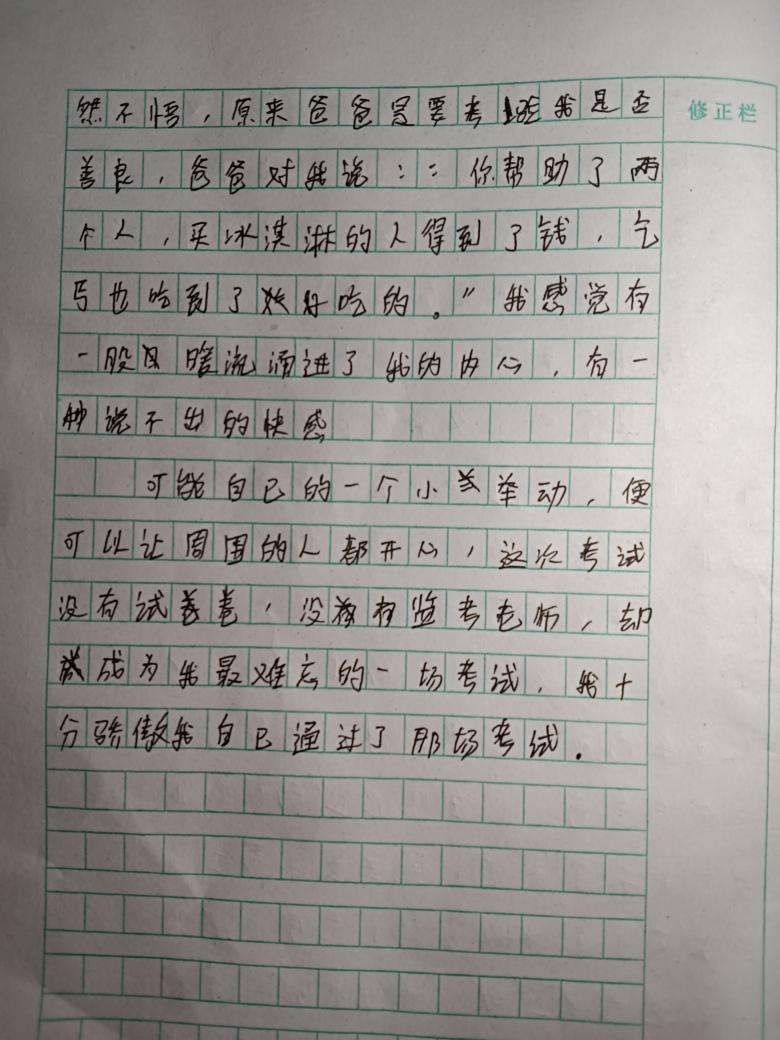 然不悟，原来爸爸是要考验我是否
修正栏
善良，爸爸对我说：：你帮助了两
个人，买冰淇淋的人得到了钱，乞
丐也吃到了好吃的。”我感觉有
一股暖流涌进了我的内心，有一
种说不出的快感
可能自已的一个小举动，便
可以让周围的人都开心，这次考试
没有试卷，没有监考老师，却
成为我最难忘的一场考试，我十
分骄傲我自已通过了那场考试．